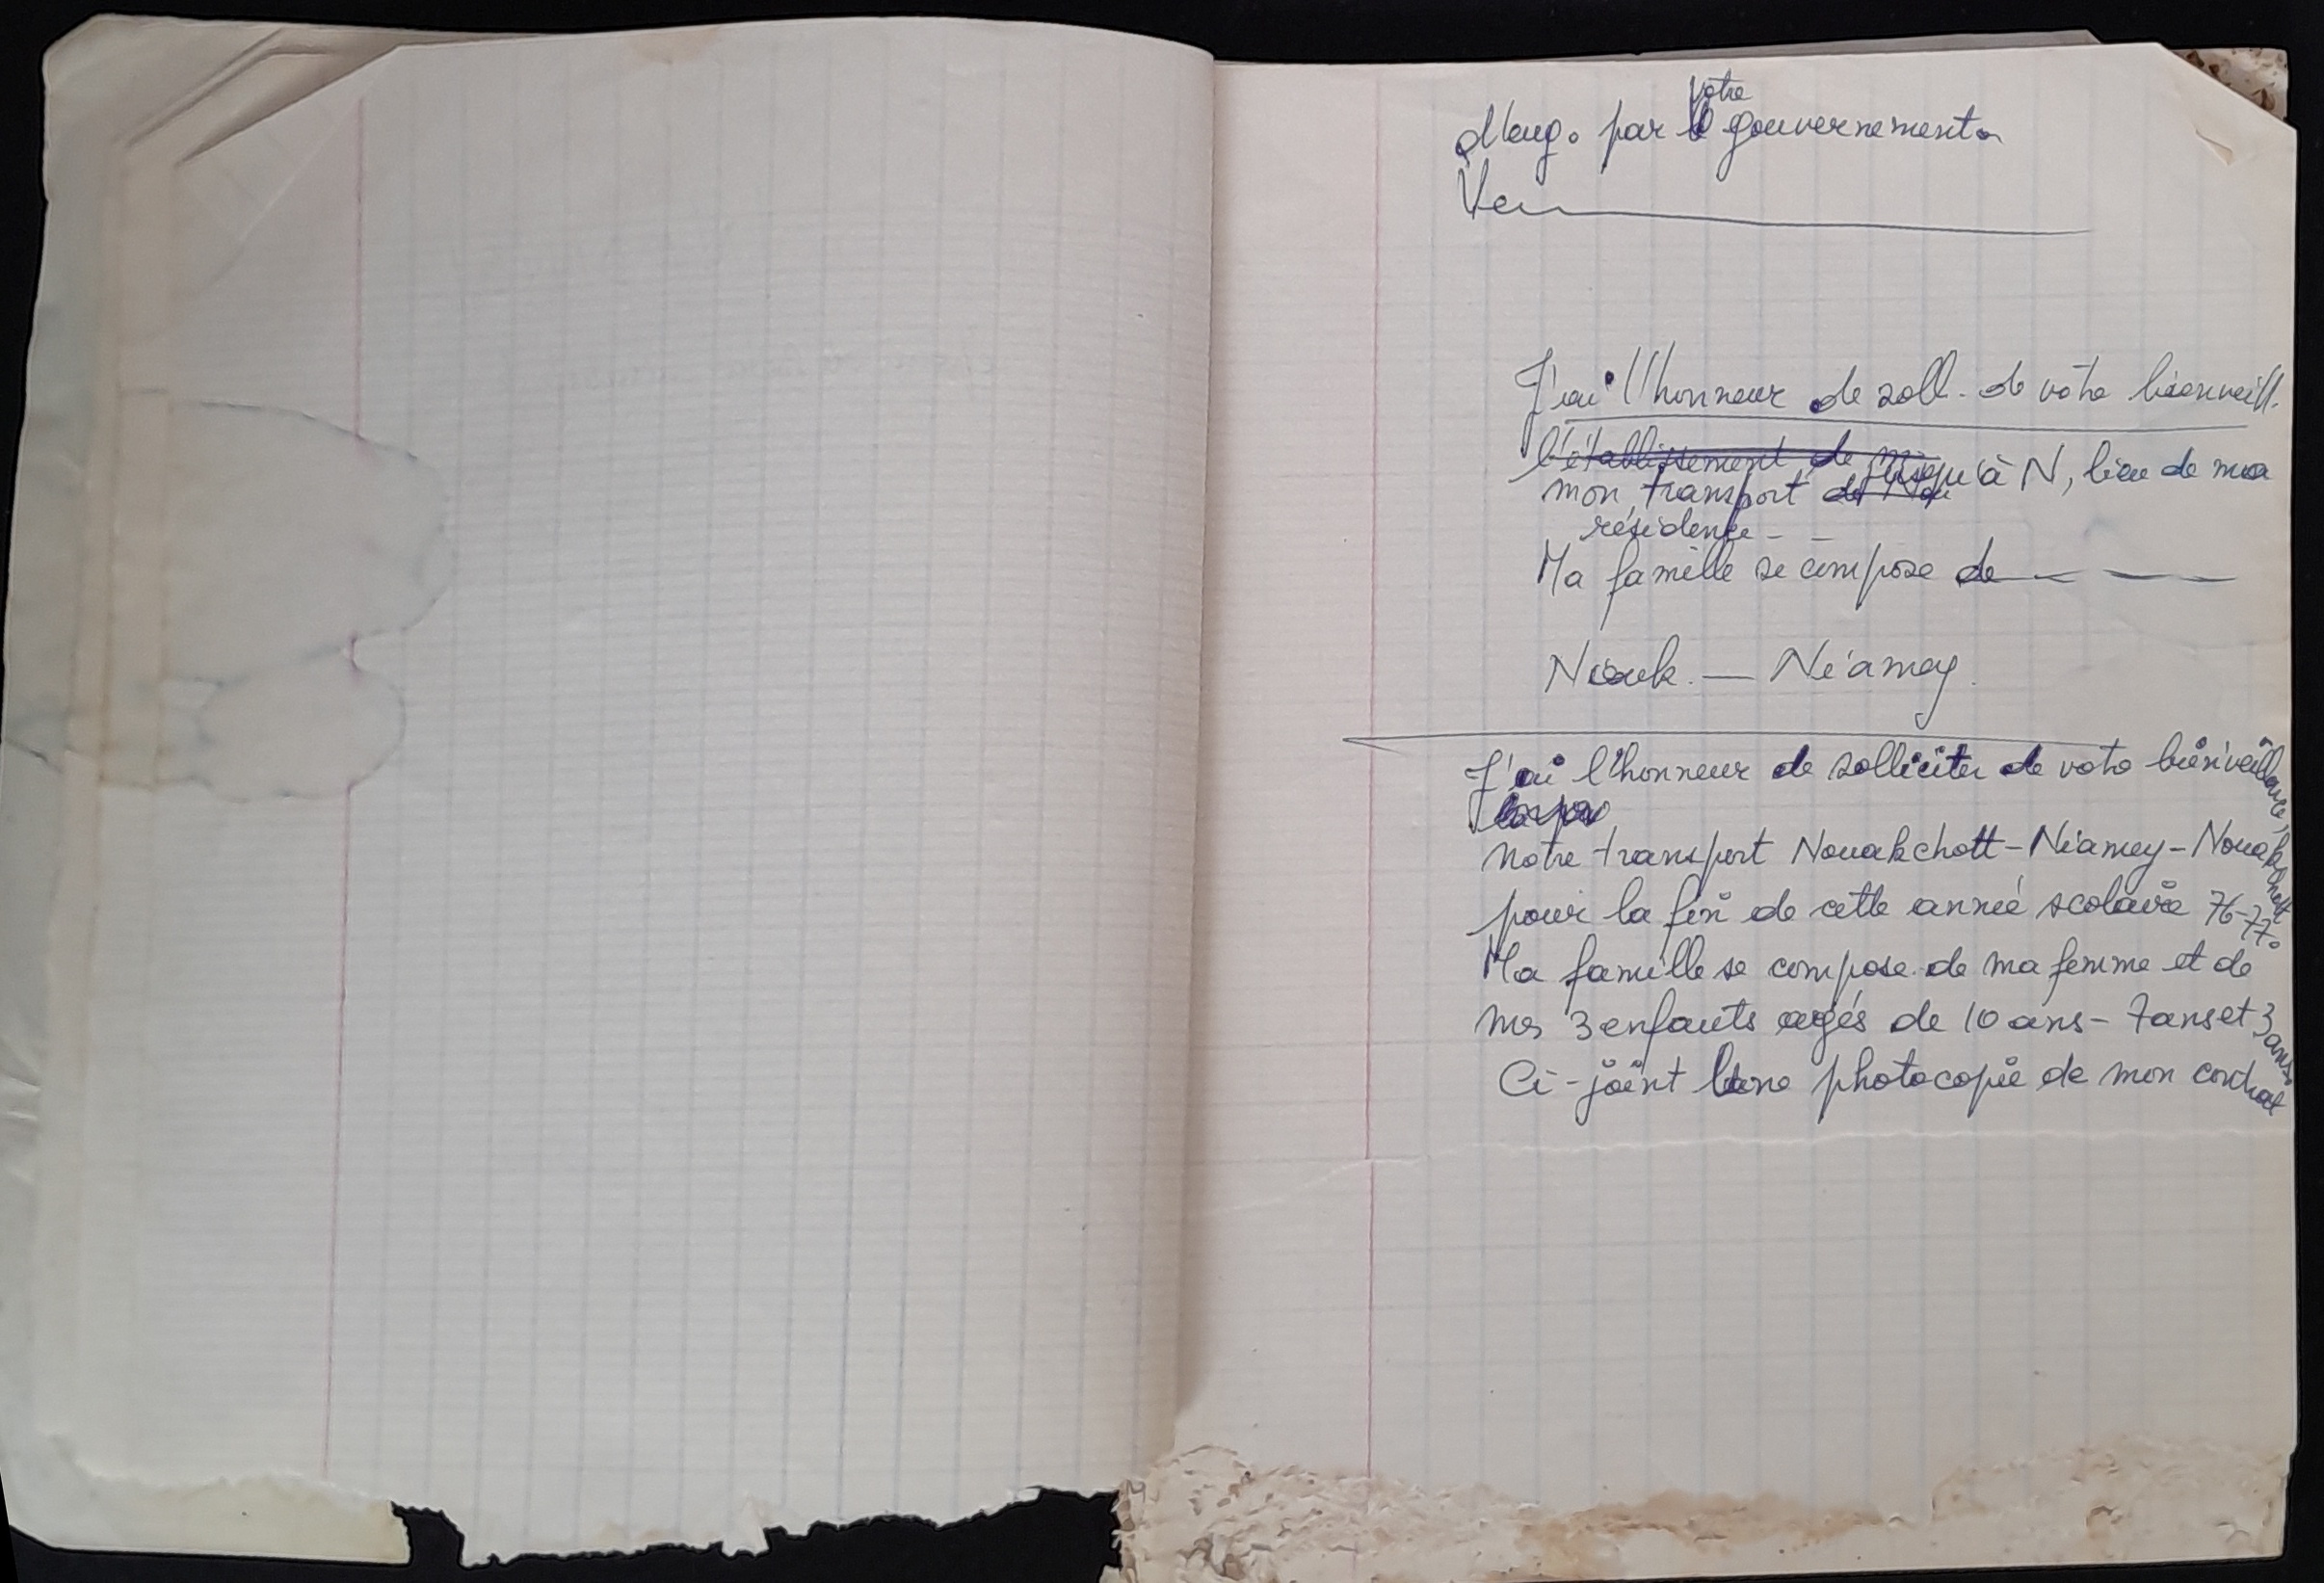 votre
par gouvernement.
Veu
J'ai l'honneur de soll. de votre bienveill.
l'établissement de
mon transport jusqu'à N, lieu de ma
résidence -
Ma famille se compose de — — —
Nouk. — Niamey.
J'ai l'honneur de solliciter de votre bienveillance,
notre transport Nouakchott - Niamey - Nouakchott
pour la fin de cette année scolaire 76-77.
Ma famille se compose de ma femme et de
mes 3 enfants agés de 10 ans - 7 ans et 3 ans.
Ci-joint une photocopie de mon contrat